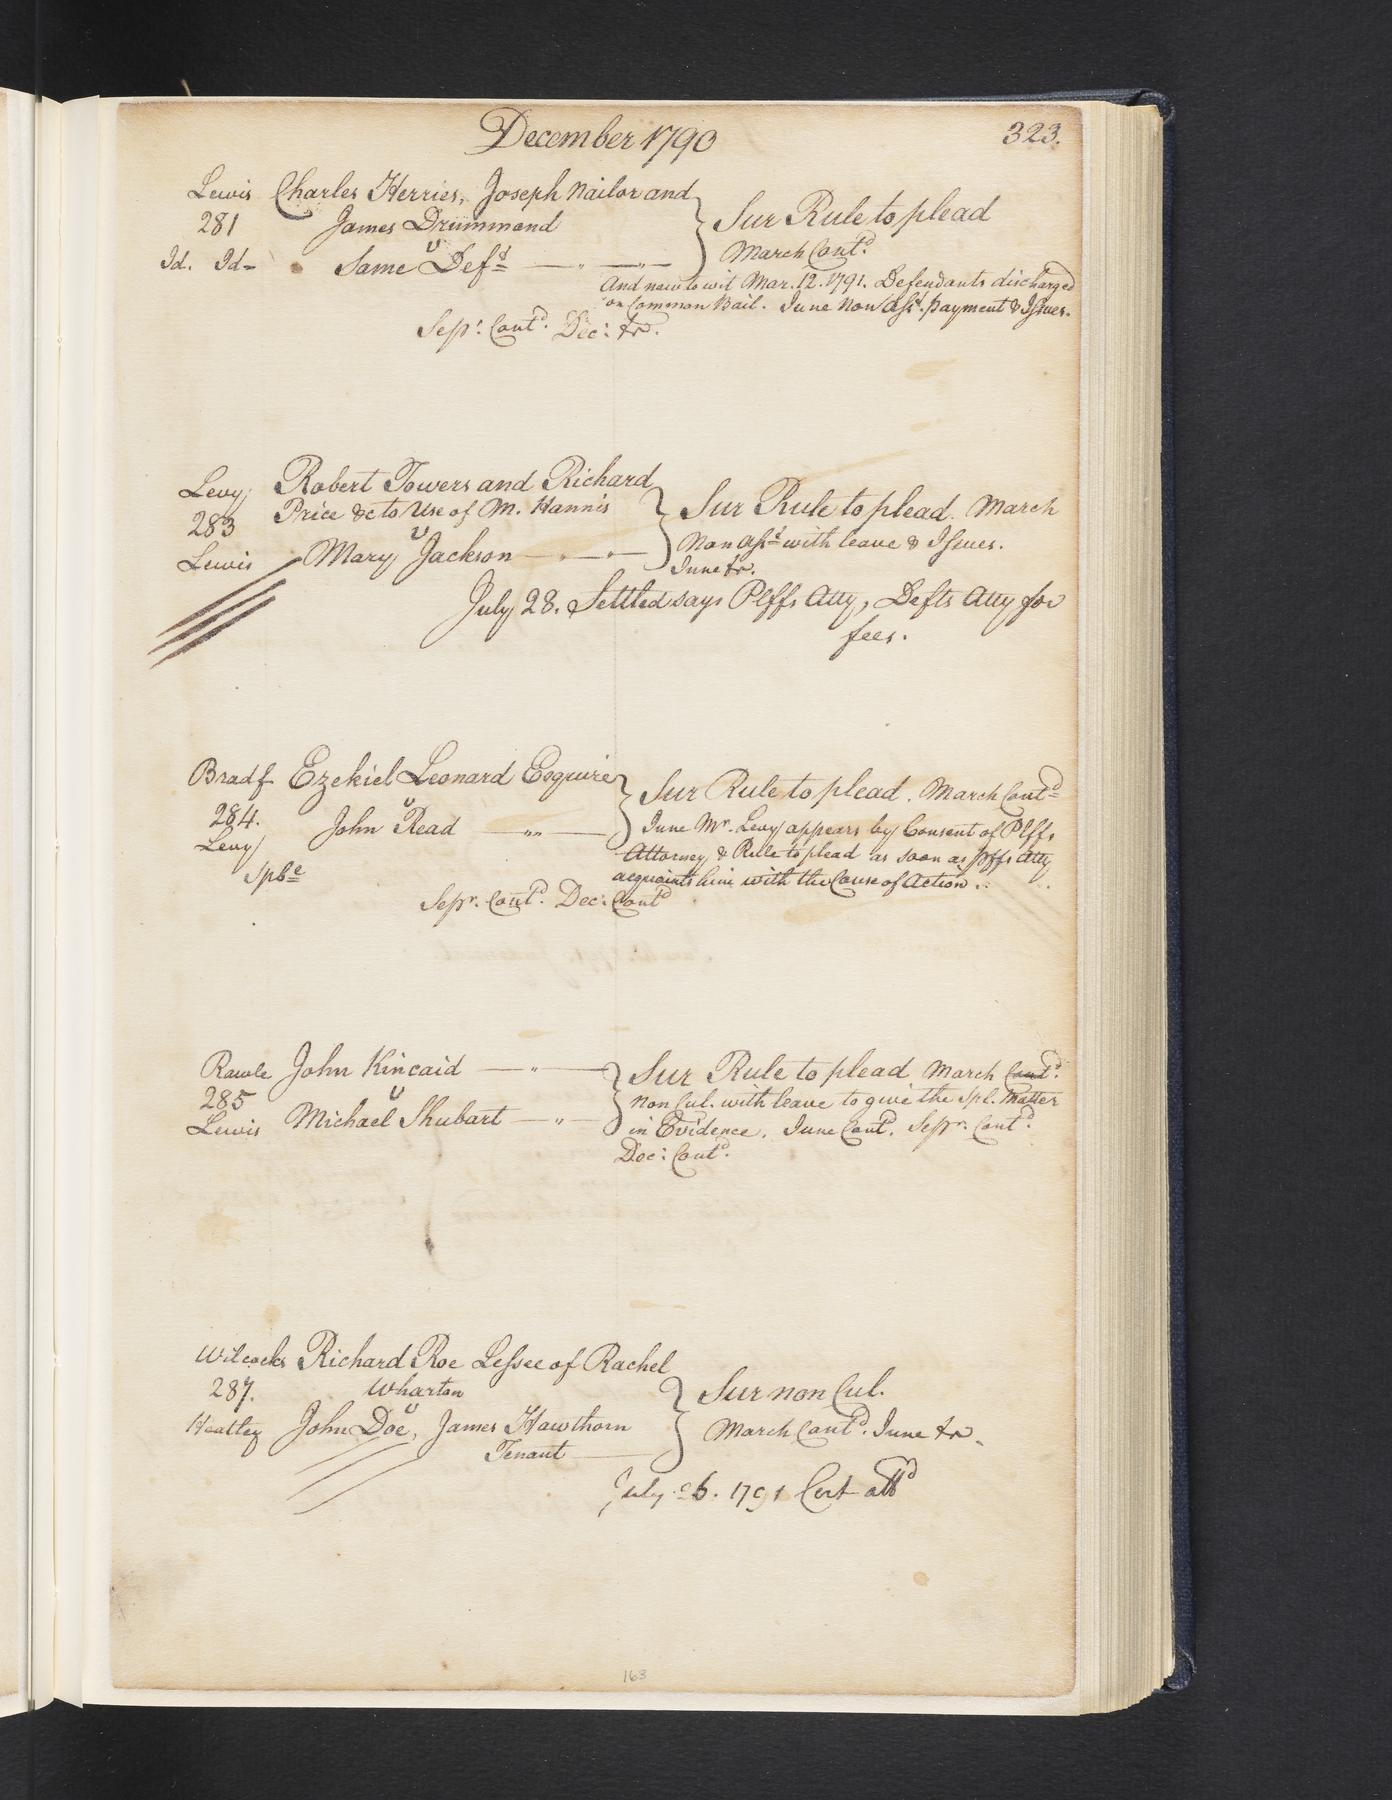 December 1790
323.
Lewis Charles Herries, Joseph Nailor and
281 James Drummond
v
Id. Id- Same Defd
Sur Rule to plead
March Contd.
And now to wit Mar. 12. 1791. Defendants discharged
on Common Bail. June Non Asst. payment & Issues.
Sepr. Contd. Dec: tr.
Levy Robert Towers and Richard
283 Price &c to Use of M. Hannis
v
Lewis Mary Jackson
Sur Rule to plead. March
Non Asst with leave & Issues.
June tr.
July 28. Settled says Plffs Atty, Defts Atty for
fees.
Bradf Ezekiel Leonard Esquire
v
284. John Read
Levy
Spbe
Sur Rule to plead. March Contd
June Mr. Levy appears by Consent of Plffs
Attorney & Rule to plead as soon as plffs Atty
acquaints him with the Cause of Action.
Sepr. Contd. Dec: Contd
Rawle John Kincaid
285 v
Lewis Michael Shubart
Sur Rule to plead March Contd.
Non Cul. with leave to give the Spl. Matter
in Evidence. June Contd. Sepr. Contd.
Dec: Contd.
Wilcocks Richard Roe Lessee of Rachel
287. Wharton
v
Heatley John Doe, James Hawthorn
Tenant
Sur non Cul.
March Contd. June tr.
July 6. 1791 Cert
163